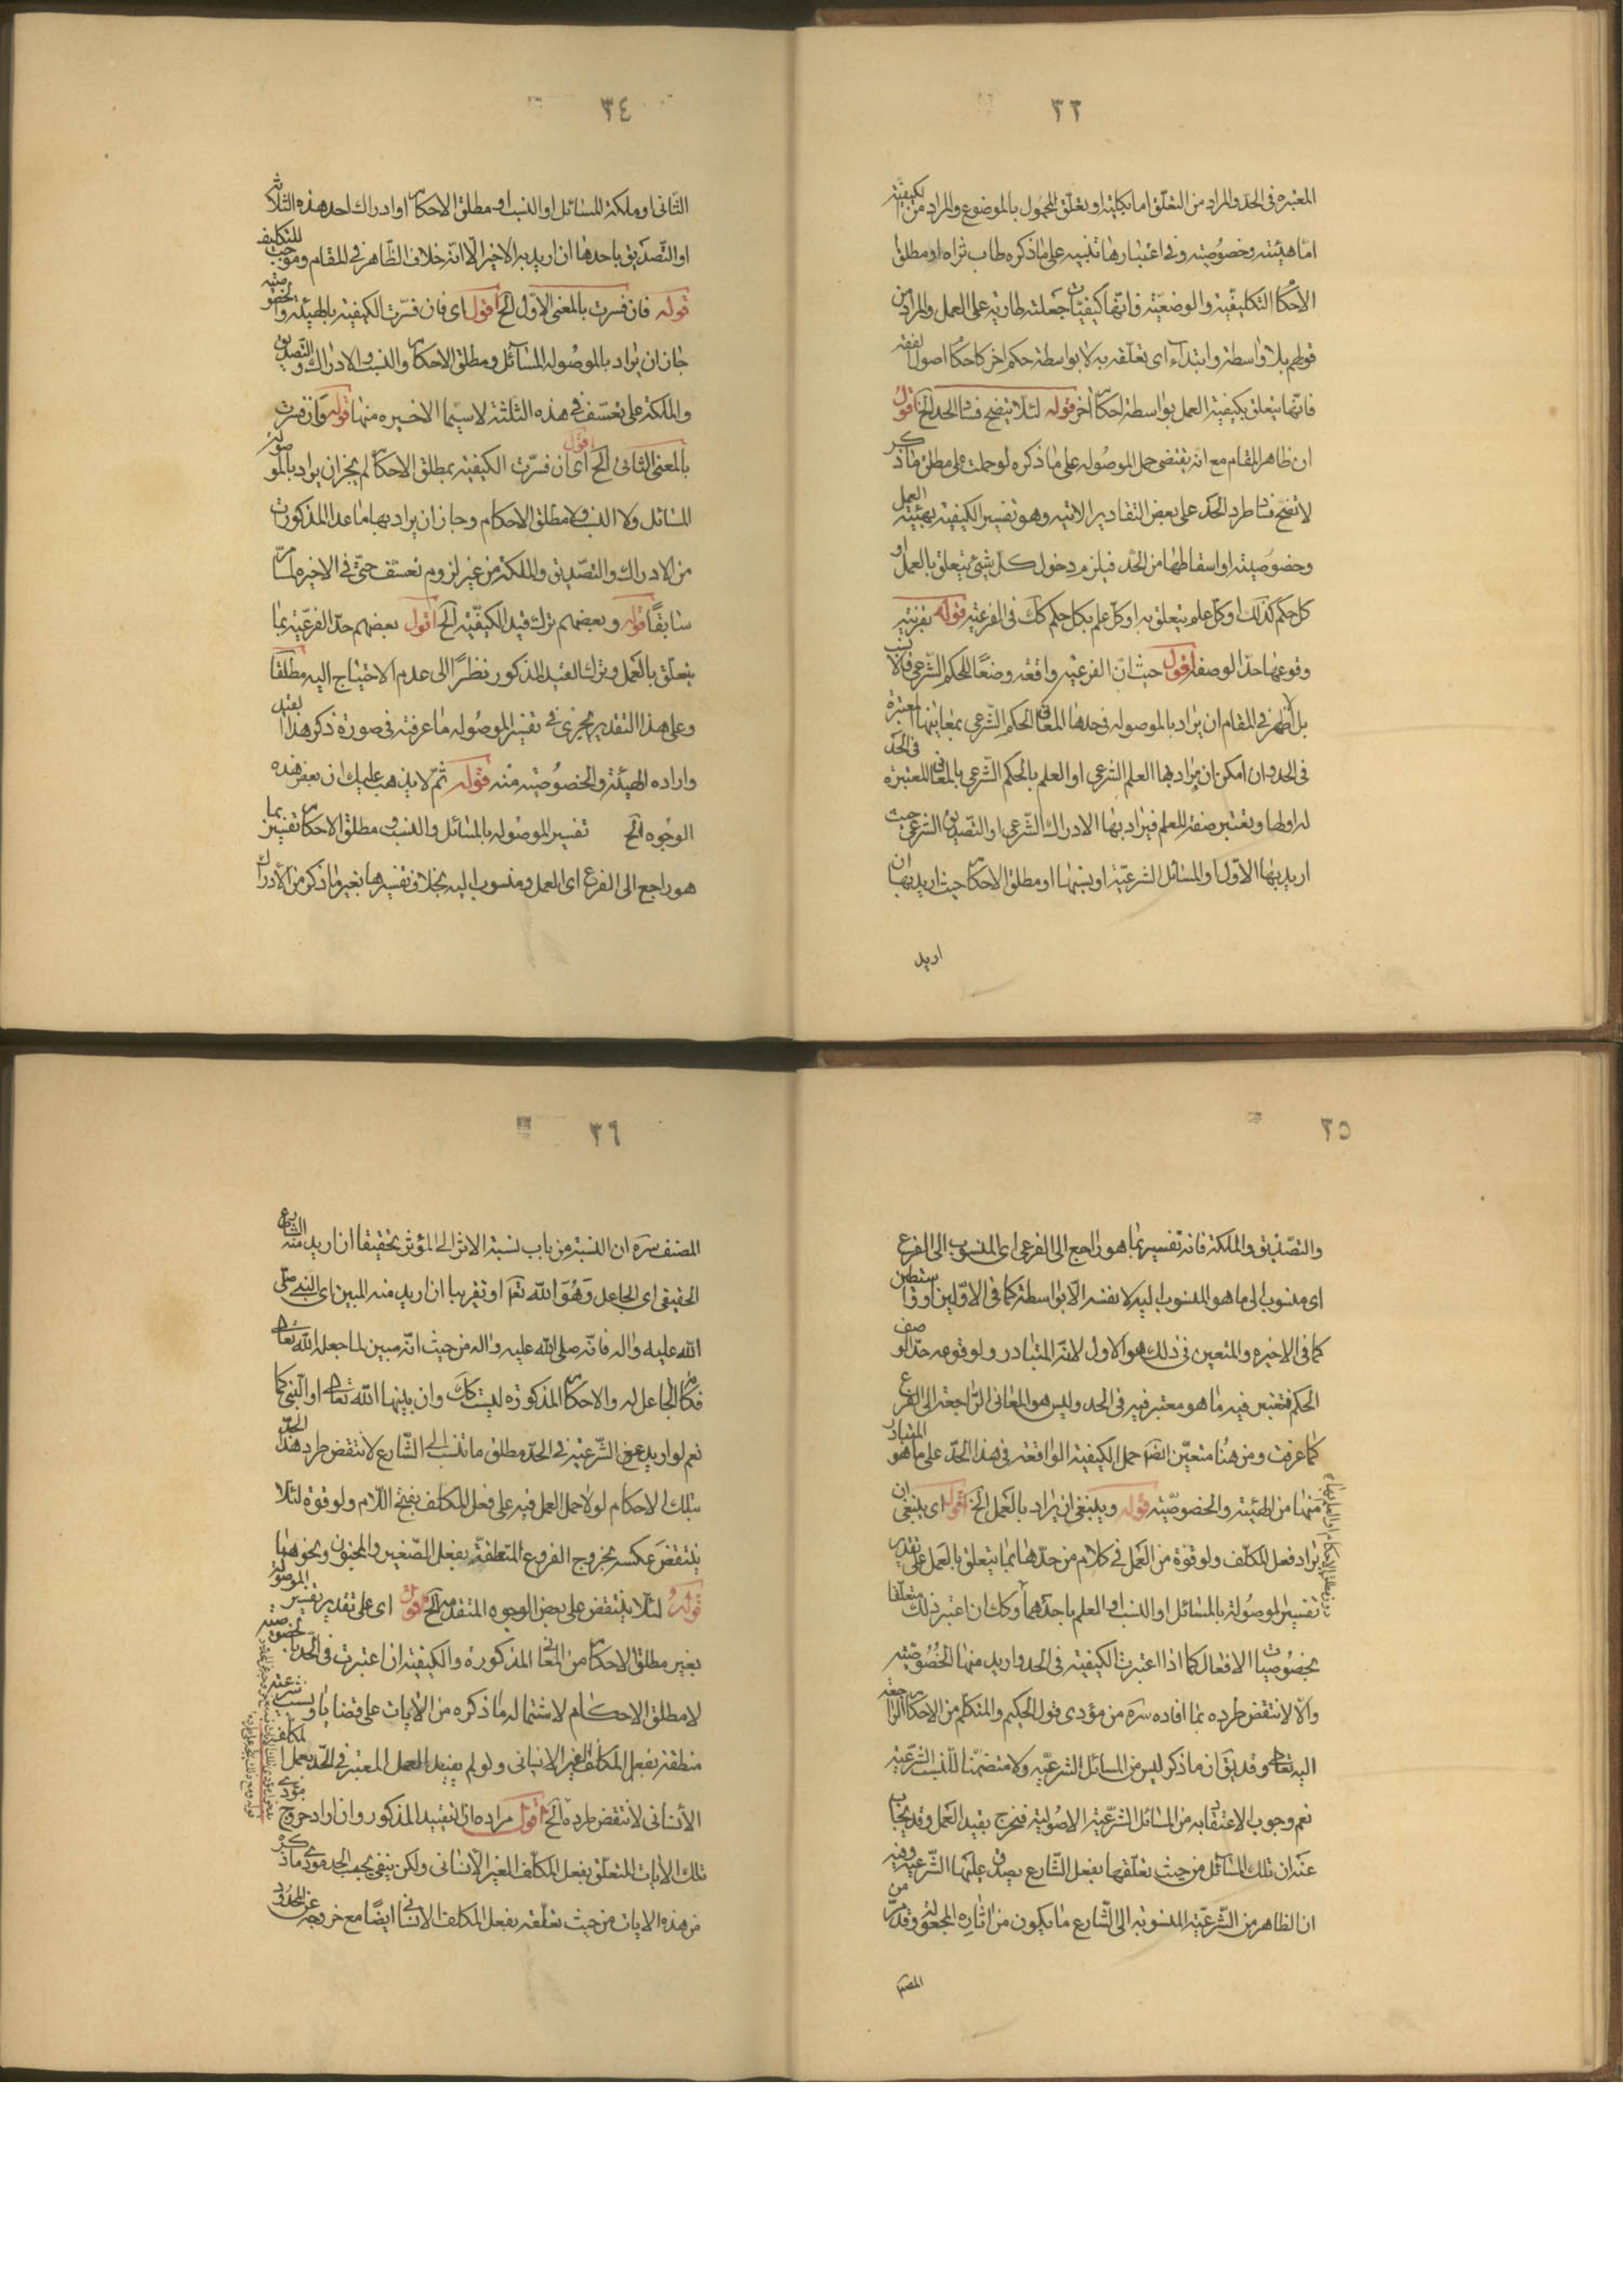 ٣٣
المعتبره فی الحد والمراد من التعلق اما بکلیته او تعلق المحمول بالموضوع والمراد من لکیفیته
اما هیئته وخصوصیته وفی اعتبارها تنبیه علی ما ذکره طاب ثراه او مطلق
الاحکام التکلیفیته والوضعیته فانها کیفیات جعلته طاریه علی العمل والمراد من
قولهم بلا واسطة وابتداء ای تعلقه به لا بواسطة حکم اخر کاحکام اصول الفقه
فانها یتعلق بکیفیته العمل بواسطة احکام اخر قوله لئلا یتضح فساد الحد الخ اقول
ان ظاهر المقام مع انه یقتضی حمل الموصوله علی ما ذکره لو حملت علی مطلق ما ذکر
لاتضح فساد طرد الحد علی بعض التقادیر الاتیه وهو تفسیر الکیفیته بهیئته العمل
وخصوصیته او اسقاطها من الحد فیلزم دخول کل شیئ یتعلق بالعمل او
کل حکم کذلک او کل علم یتعلق به او کل علم بکل حکم کک فی الفرعیه قوله بقرینه
وقوعها حدا لوصف اقول حیث ان الفرعیه واقعه وصفا للحکم الشرعی فالانسب
بل الاظهر فی المقام ان یراد بالموصوله فی حدها المعانی الحکم الشرعی بمعاینها المعتبرة
فی الحد وان امکن ان یراد بها العلم الشرعی او العلم بالحکم الشرعی بالمعانی المعتبرة فی الحد
له اولها ویعتبر صفة للعلم فیراد بها الادراک الشرعی او التصدیق الشرعی حیث
ارید بها الاول او المسائل الشرعیة او نسبتها او مطلق الاحکام حیث ارید بها ان
ارید
٣٤
الثانی او ملکة المسائل او النسب او مطلق الاحکام او ادراک احد هذه الثلاثه
او التصدیق باحدها ان ارید به الاخیر الا انه خلاف الظاهر فی المقام وموجب للتکلیف
قوله فان فسرت بالمعنی الاول الخ اقول ای فان فسرت الکیفیته بالهیئته والخصوصیته
جاز ان یراد بالموصوله المسائل ومطلق الاحکام والنسب والادراک والتصدیق
والملکة علی تعسف فی هذه الثلثة لا سیما الاخیره منها قوله وان فسرت
بالمعنی الثانی الخ اقول ای ان فسرت الکیفیته بمطلق الاحکام لم یجز ان یراد بالموصوله
المسائل ولا النسب ولا مطلق الاحکام وجاز ان یراد بها ما عدا المذکورات
من الادراک والتصدیق والملکة من غیر لزوم تعسف حتی فی الاخیره لما مر
سابقًا قوله وبعضهم ترک قید الکیفیته الخ اقول بعضهم حد الفرعیته بما
یتعلق بالعمل وترک القید المذکور نظرًا الی عدم الاحتیاج الیه مطلقا
وعلی هذا التقدیر یجری فی تفسیر الموصوله ما عرفته فی صورة ذکر هذا القید
واراده الهیئته والخصوصیته منه قوله ثم لا یذهب علیک ان بعض هذه
الوجوه الخ تفسیر الموصوله بالمسائل والنسب ومطلق الاحکام تفسیر بما
هو راجع الی الفرع ای العمل ومنسوب الیه بخلاف تفسیرها بغیر ما ذکر من الادراک
٣٥
والتصدیق والملکة فانه تفسیر بما هو راجع الی الفرعی ای المنسوب الی الفرع
ای منسوب الی ما هو المنسوب الیه لا نفسه الا بواسطة کما فی الاولین او واسطتین
کما فی الاخیره والمتعین فی ذلک هو الاول لانه المتبادر ولوقوعه حدا لوصف
الحکم فتعتبر فیه ما هو معتبر فیه فی الحد ولیس هو المعانی الراجعة الی الفرع
کما عرفت ومن هنا متعین ایضا حمل الکیفیته الواقعة فی هذا الحد علی ما هو المتبادر
منها من الهیئته والخصوصیته قوله وینبغی ان یراد بالعمل الخ اقول ای ینبغی ان
یراد فعل المکلف ولو قوة من العمل فی کلام من حدها بما یتعلق بالعمل علی تقدیر
تفسیر الموصولة بالمسائل او النسب او العلم باحدهما وکک ان اعتبر ذلک متعلقا
بخصوصیات الافعال کما اذا اعتبرت الکیفیته فی الحد وارید منها الخصوصیته
والا لانتقض طرده بما افاده سره من مؤدی قول الحکیم والمتکلم من الاحکام الراجعه
الیه تعالی وقد یق ان ما ذکر لیس من المسائل الشرعیه ولا متضمنا للنسب الشرعیه
نعم وجوب الاعتقاد به من المسائل الشرعیة الاصولیة فتخرج بقید العمل وقد یجاب
عنه ان تلک المسائل من حیث تعلقها بفعل الشارع یصدق علیها الشرعیه وفیه
ان الظاهر من الشرعیه المنسوبه الی الشارع ما یکون من اثاره المجعولة وقد مر من
المصنف
٣٦
المصنف سره ان النسبة من باب نسبة الاثر الی المؤثر تحقیقا ان ارید منه الشارع
الحقیقی ای الجاعل وهو الله تعالی او تقریبا ان ارید منه المبین ای النبی صلی
الله علیه واله فانه صلی الله علیه واله من حیث انه مبین لما جعل الله تعالی
فکانه الجاعل له والاحکام المذکوره لیست کک وان بینها الله تعالی او النبی کما
نعم لو ارید من الشرعیه فی الحد مطلق ما تنسب الی الشارع لانتقض طرد هذا الحد
بتلک الاحکام لولا حمل العمل فیه علی فعل المکلف بفتح اللام ولو قوة لئلا
ینتقض عکسه بخروج الفروع المتعلقة بفعل الصغیر والمجنون ونحوهما
قوله لئلا ینتقض علی بعض الوجوه المتقدمه الخ اقول ای علی تقدیر تفسیر الموصوله
بغیر مطلق الاحکام من المعانی المذکورة والکیفیته ان اعتبرت فی الحد بالخصوصیته
لا مطلق الاحکام لاشتماله ما ذکره من الایات علی قضایا ونسب شرعیه
متعلقة بفعل المکلف الغیر الانسانی ولو لم یقید العمل المعتبر فی الحد بعمل المکلف
الانسانی لانتقض طرده الخ اقول مراده ان التقیید المذکور وان اراد خروج مؤدی
تلک الایات المتعلق بفعل المکلف الغیر الانسانی ولکن ینبغی بحسب الحد مؤدی ما ذکر
من هذه الایات من حیث تعلقه بفعل المکلف الانسانی ایضًا مع خروجه عن المحدود